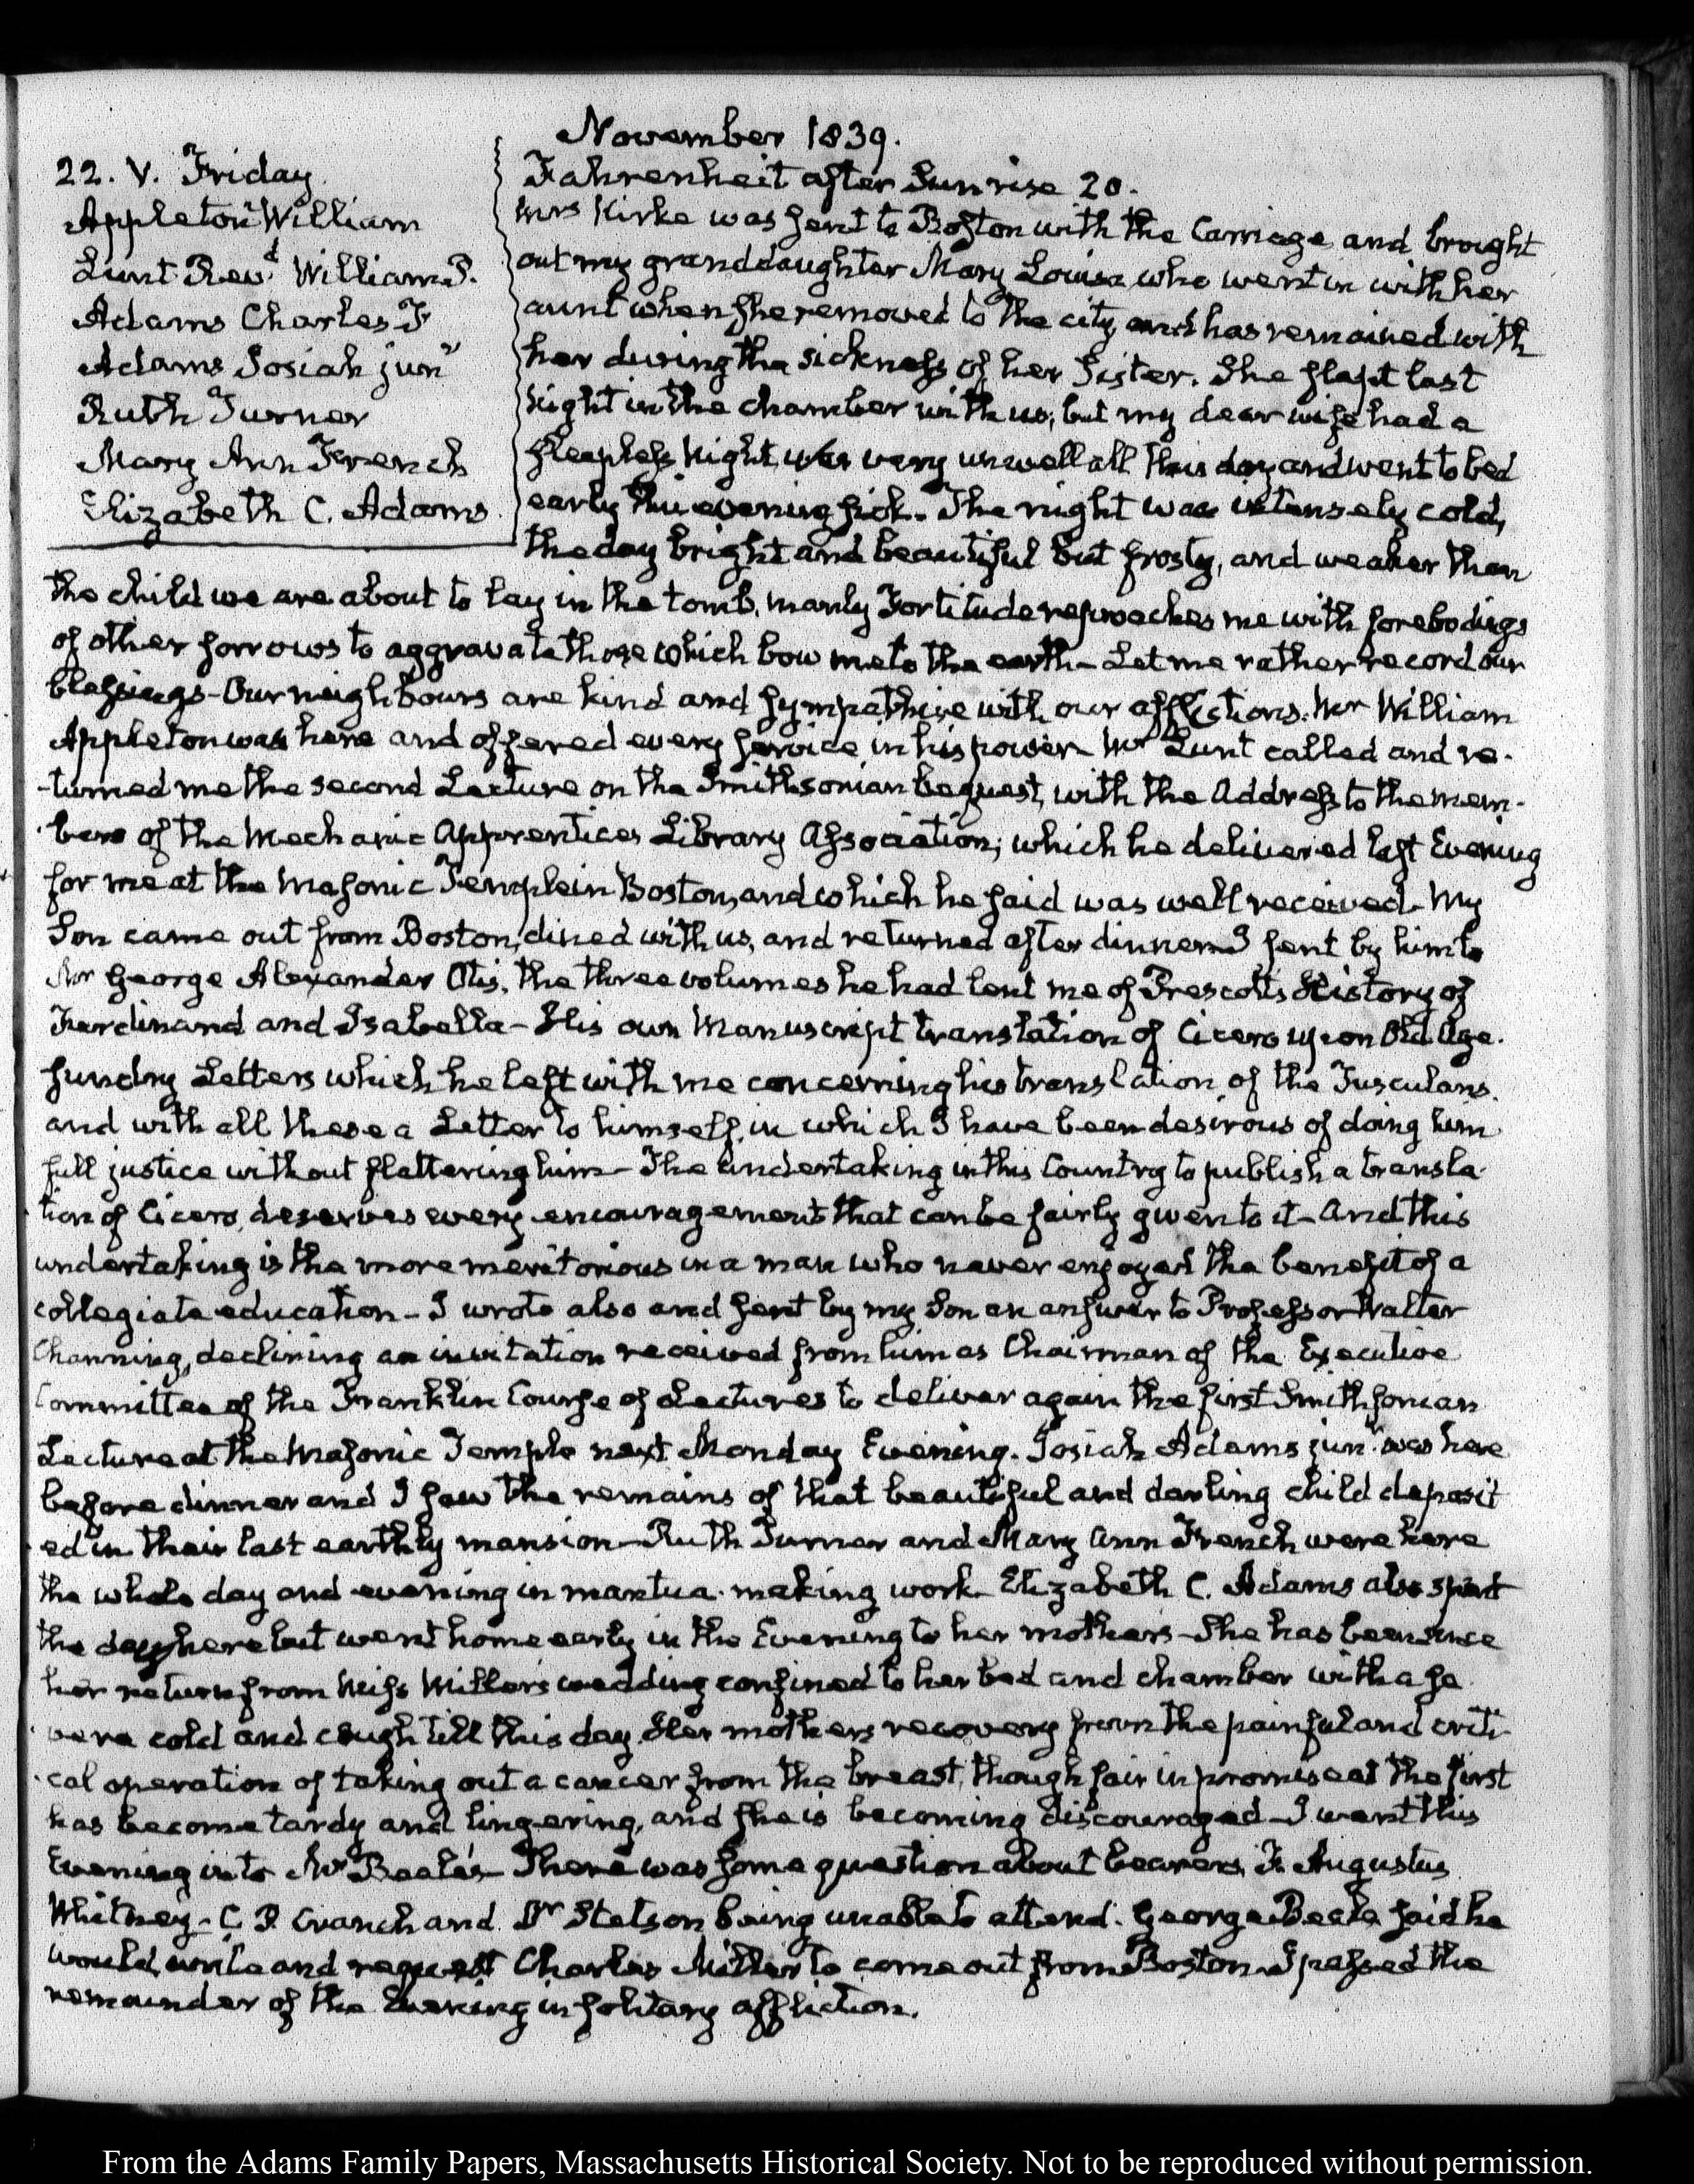 November 1839.
22. V. Friday
Appleton William
Lunt Revd. William P.
Adams Charles F
Adams Josiah junr
Ruth Turner
Mary Ann French
Elizabeth C. Adams
Fahrenheit after Sunrise 20.
Mrs Kirke was sent to Boston with the Carriage and brought
out my granddaughter Mary Louisa who went in with her
aunt when she removed to the city and has remained with
her during the sickness of her Sister. She slept last
Night in the chamber with us, but my dear wife had a
sleepless Night, was very unwell all this day and went to bed
early this evening sick. The night was intensely cold,
the day bright and beautiful but frosty, and weaker than
the child we are about to lay in the tomb, manly Fortitude reproaches me with forebodings
of other sorrows to aggravate those which bow me to the earth - Let me rather record our
blessings - Our neighbours are kind and sympathise with our afflictions. Mr William
Appleton was here and offered every service in his power Mr Lunt called and re-
-turned me the second Lecture on the Smithsonian bequest, with the Address to the mem-
bers of the Mechanic Apprentices Library Association; which he delivered last Evening
for me at the Masonic Temple in Boston, and which he said was well received. My
Son came out from Boston, dined with us, and returned after dinner. I sent by him to
Mr George Alexander Otis, the three volumes he had lent me of Prescott's History of
Ferdinand and Isabella - His own Manuscript translation of Cicero upon Old Age.
sundry Letters which he left with me concerning his translation of the Tusculans.
and with all these a Letter to himself, in which I have been desirous of doing him
full justice without flattering him - The undertaking in this Country to publish a transla-
tion of Cicero, deserves every encouragement that can be fairly given to it - And this
undertaking is the more meritorious in a man who never enjoyed the benefit of a
collegiate education - I wrote also and sent by my Son an answer to Professor Walter
Channing, declining an invitation received from him as Chairman of the Executive
Committee of the Franklin Course of Lectures to deliver again the first Smithsonian
Lecture at the Masonic Temple next Monday Evening. Josiah Adams junr. was here
before dinner and I saw the remains of that beautiful and darling child deposit
ed in their last earthly mansion - Ruth Turner and Mary Ann French were here
the whole day and evening in mantua-making work Elizabeth C. Adams also spent
the day here but went home early in the Evening to her mother's - She has been since
her return from Miss Miller's wedding confined to her bed and chamber with a se
vere cold and cough till this day. Her mother's recovery from the painful and criti-
cal operation of taking out a cancer from the breast, though fair in promise at the first
has become tardy and lingering, and she is becoming discouraged - I went this
Evening in to Mr Beale's - There was some question about bearers, F. Augustus
Whitney - C. P. Cranch and Dr Stetson being unable to attend. George Beale said he
would write and request Charles Miller to come out from Boston. I passed the
remainder of the Evening in solitary affliction.
From the Adams Family Papers, Massachusetts Historical Society. Not to be reproduced without permission.